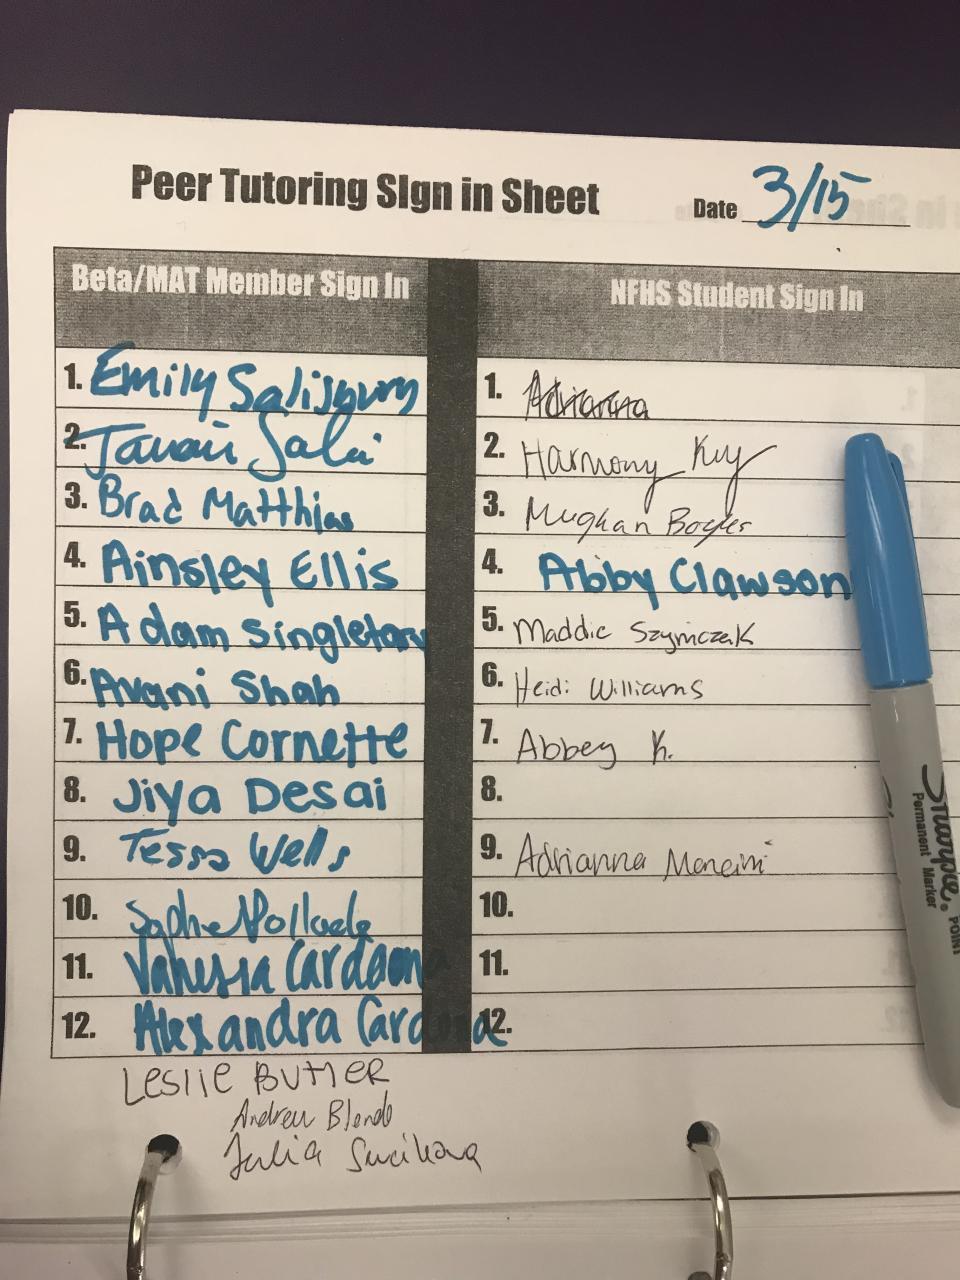 Peer Tutoring SIgn in Sheet
Date 3/15
Beta/MAT Member Sign In
1. Emily Salisbury
2.
3. Brad Matthias
4. Ainsley Ellis
5. Adam Singletary
6. Avani Shah
7. Hope Cornette
8. Jiya Desai
9. Tessa Wells
10.
11. Vanessa Cardoona
12. Alexandra Cardona
Leslie Butler
Andrew Blendo
Julia
NFHS Student Sign In
1. Adrianna
2. Harmony Key
3. Mughan
4. Abby Clawson
5. Maddie Szymczak
6. Heidi Williams
7. Abbey K.
8.
9. Adrianna Mancini
10.
11.
12.
Sharpie
Permanent Marker